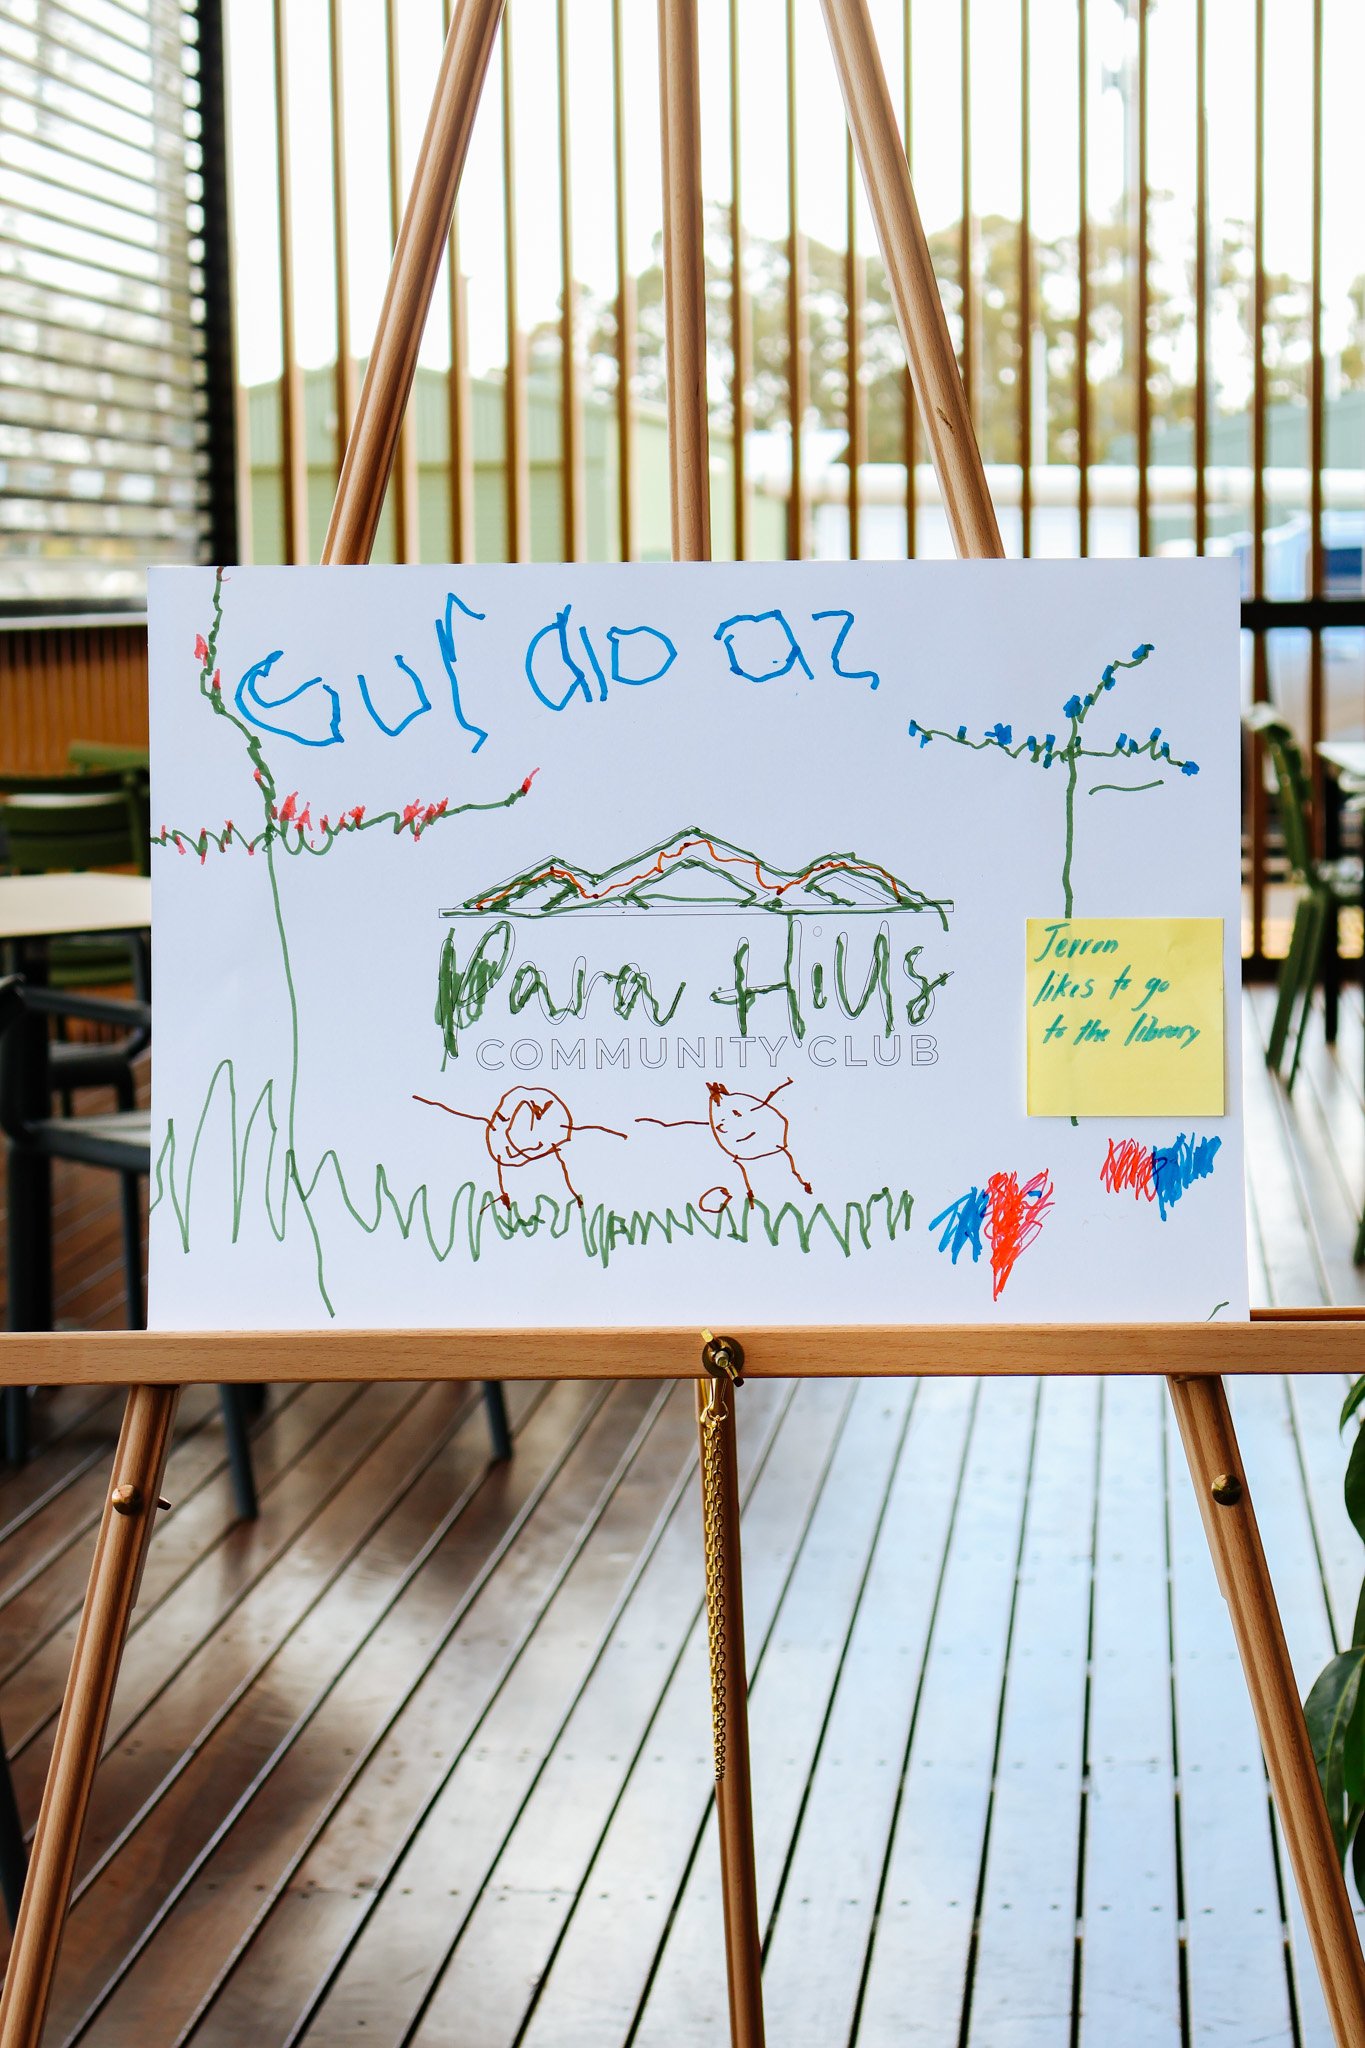 Para Hills
COMMUNITY CLUB
Jerron
likes to go
to the library